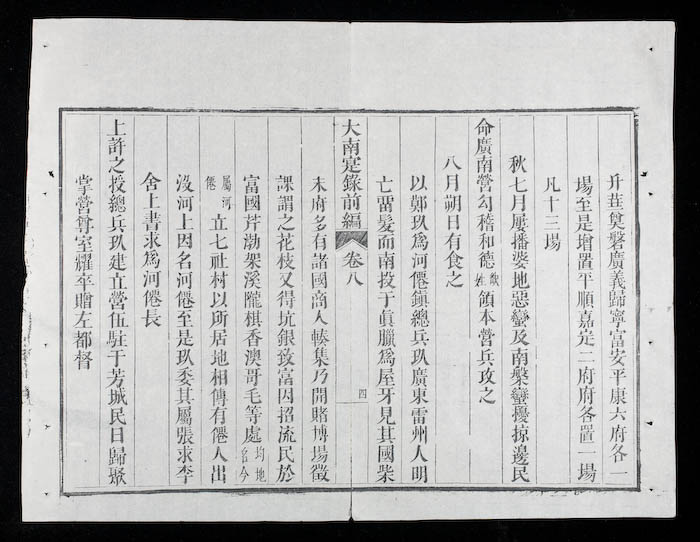 升莚奠磐廣義歸寧富安平康六府各一
場至是增置平順嘉定二府府各置一場
凡十三場
秋七月屢播婆地惡蠻及南槃蠻擾掠邊民
命廣南營勾稽和德缺姓領本營兵攻之
八月朔日有食之
以鄭玖為河僊鎮總兵玖廣東雷州人明
亡畱髮而南投于眞臘為屋牙見其國柴
大南寔錄前編 卷八 四
末府多有諸國商人輳集乃開賭博場徵
課謂之花枝又得坑銀致富因招流民於
富國芹渤架溪隴棋香澳哥毛等處均地名今
屬河僊立七社村以所居地相傳有僊人出
沒河上因名河僊至是玖委其屬張求李
舍上書求為河僊長
上許之授總兵玖建立營伍駐于芳城民日歸聚
掌營尊室耀卒贈左都督